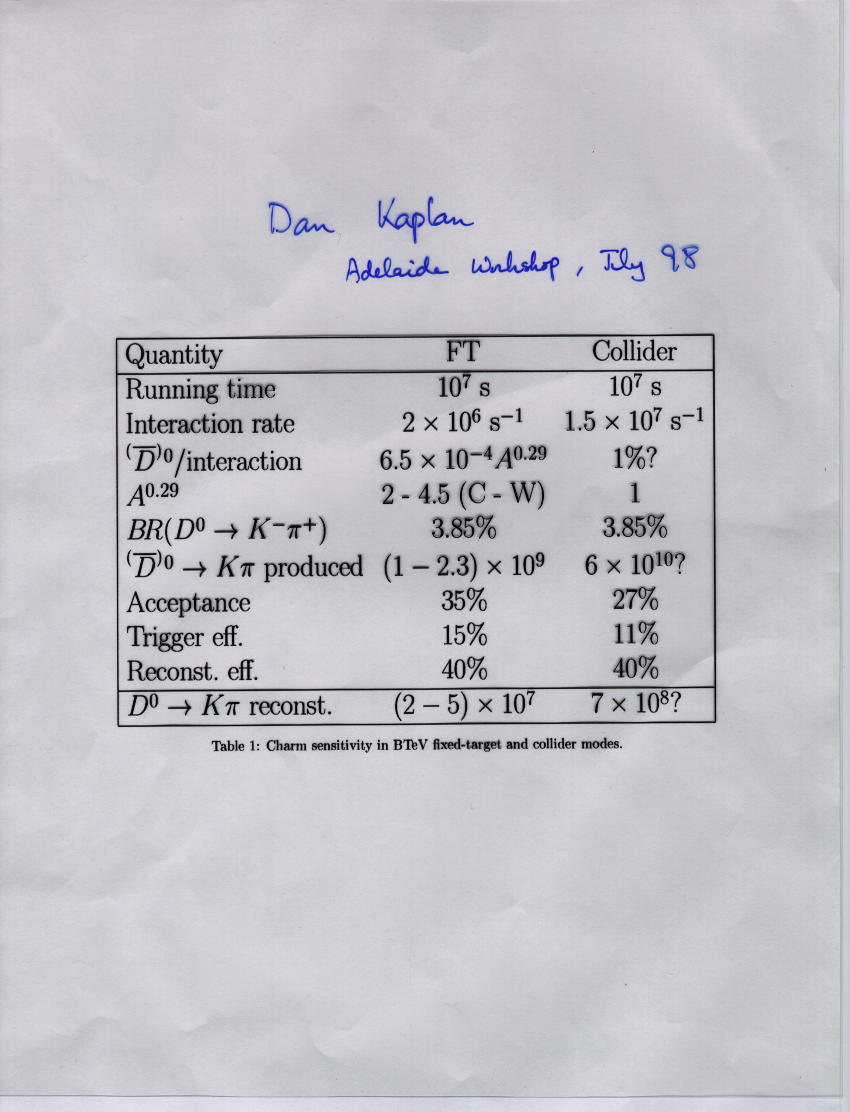 Dan Kaplan
Adelaide Workshop, July 98
Quantity FT Collider
Running time 10⁷ s 10⁷ s
Interaction rate 2 × 10⁶ s⁻¹ 1.5 × 10⁷ s⁻¹
⁽D̅⁾⁰/interaction 6.5 × 10⁻⁴A⁰·²⁹ 1%?
A⁰·²⁹ 2 - 4.5 (C - W) 1
BR(D⁰ → K⁻π⁺) 3.85% 3.85%
⁽D̅⁾⁰ → Kπ produced (1 – 2.3) × 10⁹ 6 × 10¹⁰?
Acceptance 35% 27%
Trigger eff. 15% 11%
Reconst. eff. 40% 40%
D⁰ → Kπ reconst. (2 – 5) × 10⁷ 7 × 10⁸?
Table 1: Charm sensitivity in BTeV fixed-target and collider modes.